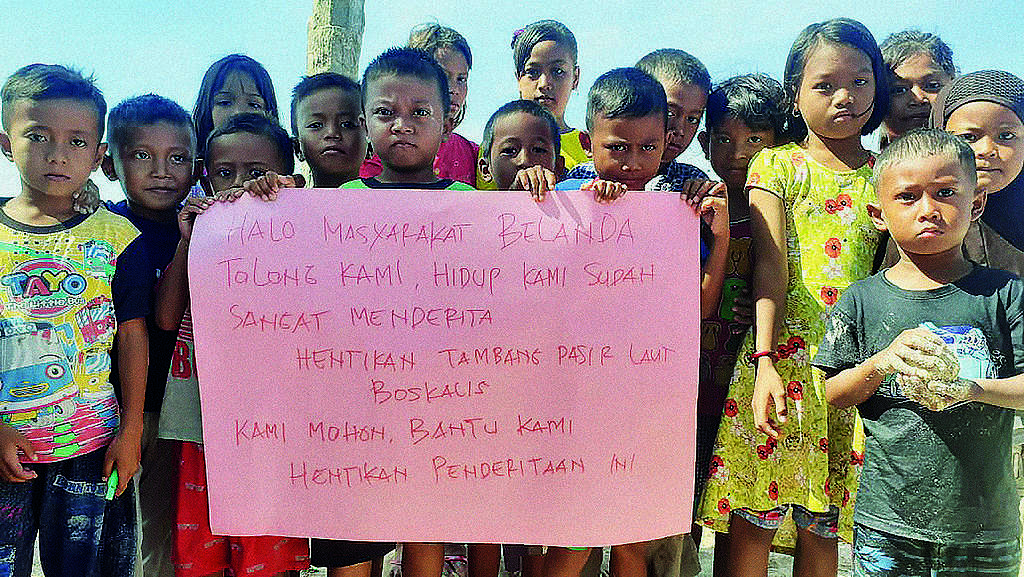 HALO MASYARAKAT BELANDA
TOLONG KAMI, HIDUP KAMI SUDAH
SANGAT MENDERITA
HENTIKAN TAMBANG PASIR LAUT
BOSKALIS
KAMI MOHON, BANTU KAMI
HENTIKAN PENDERITAAN INI
TAYO
THE LITTLE BUS